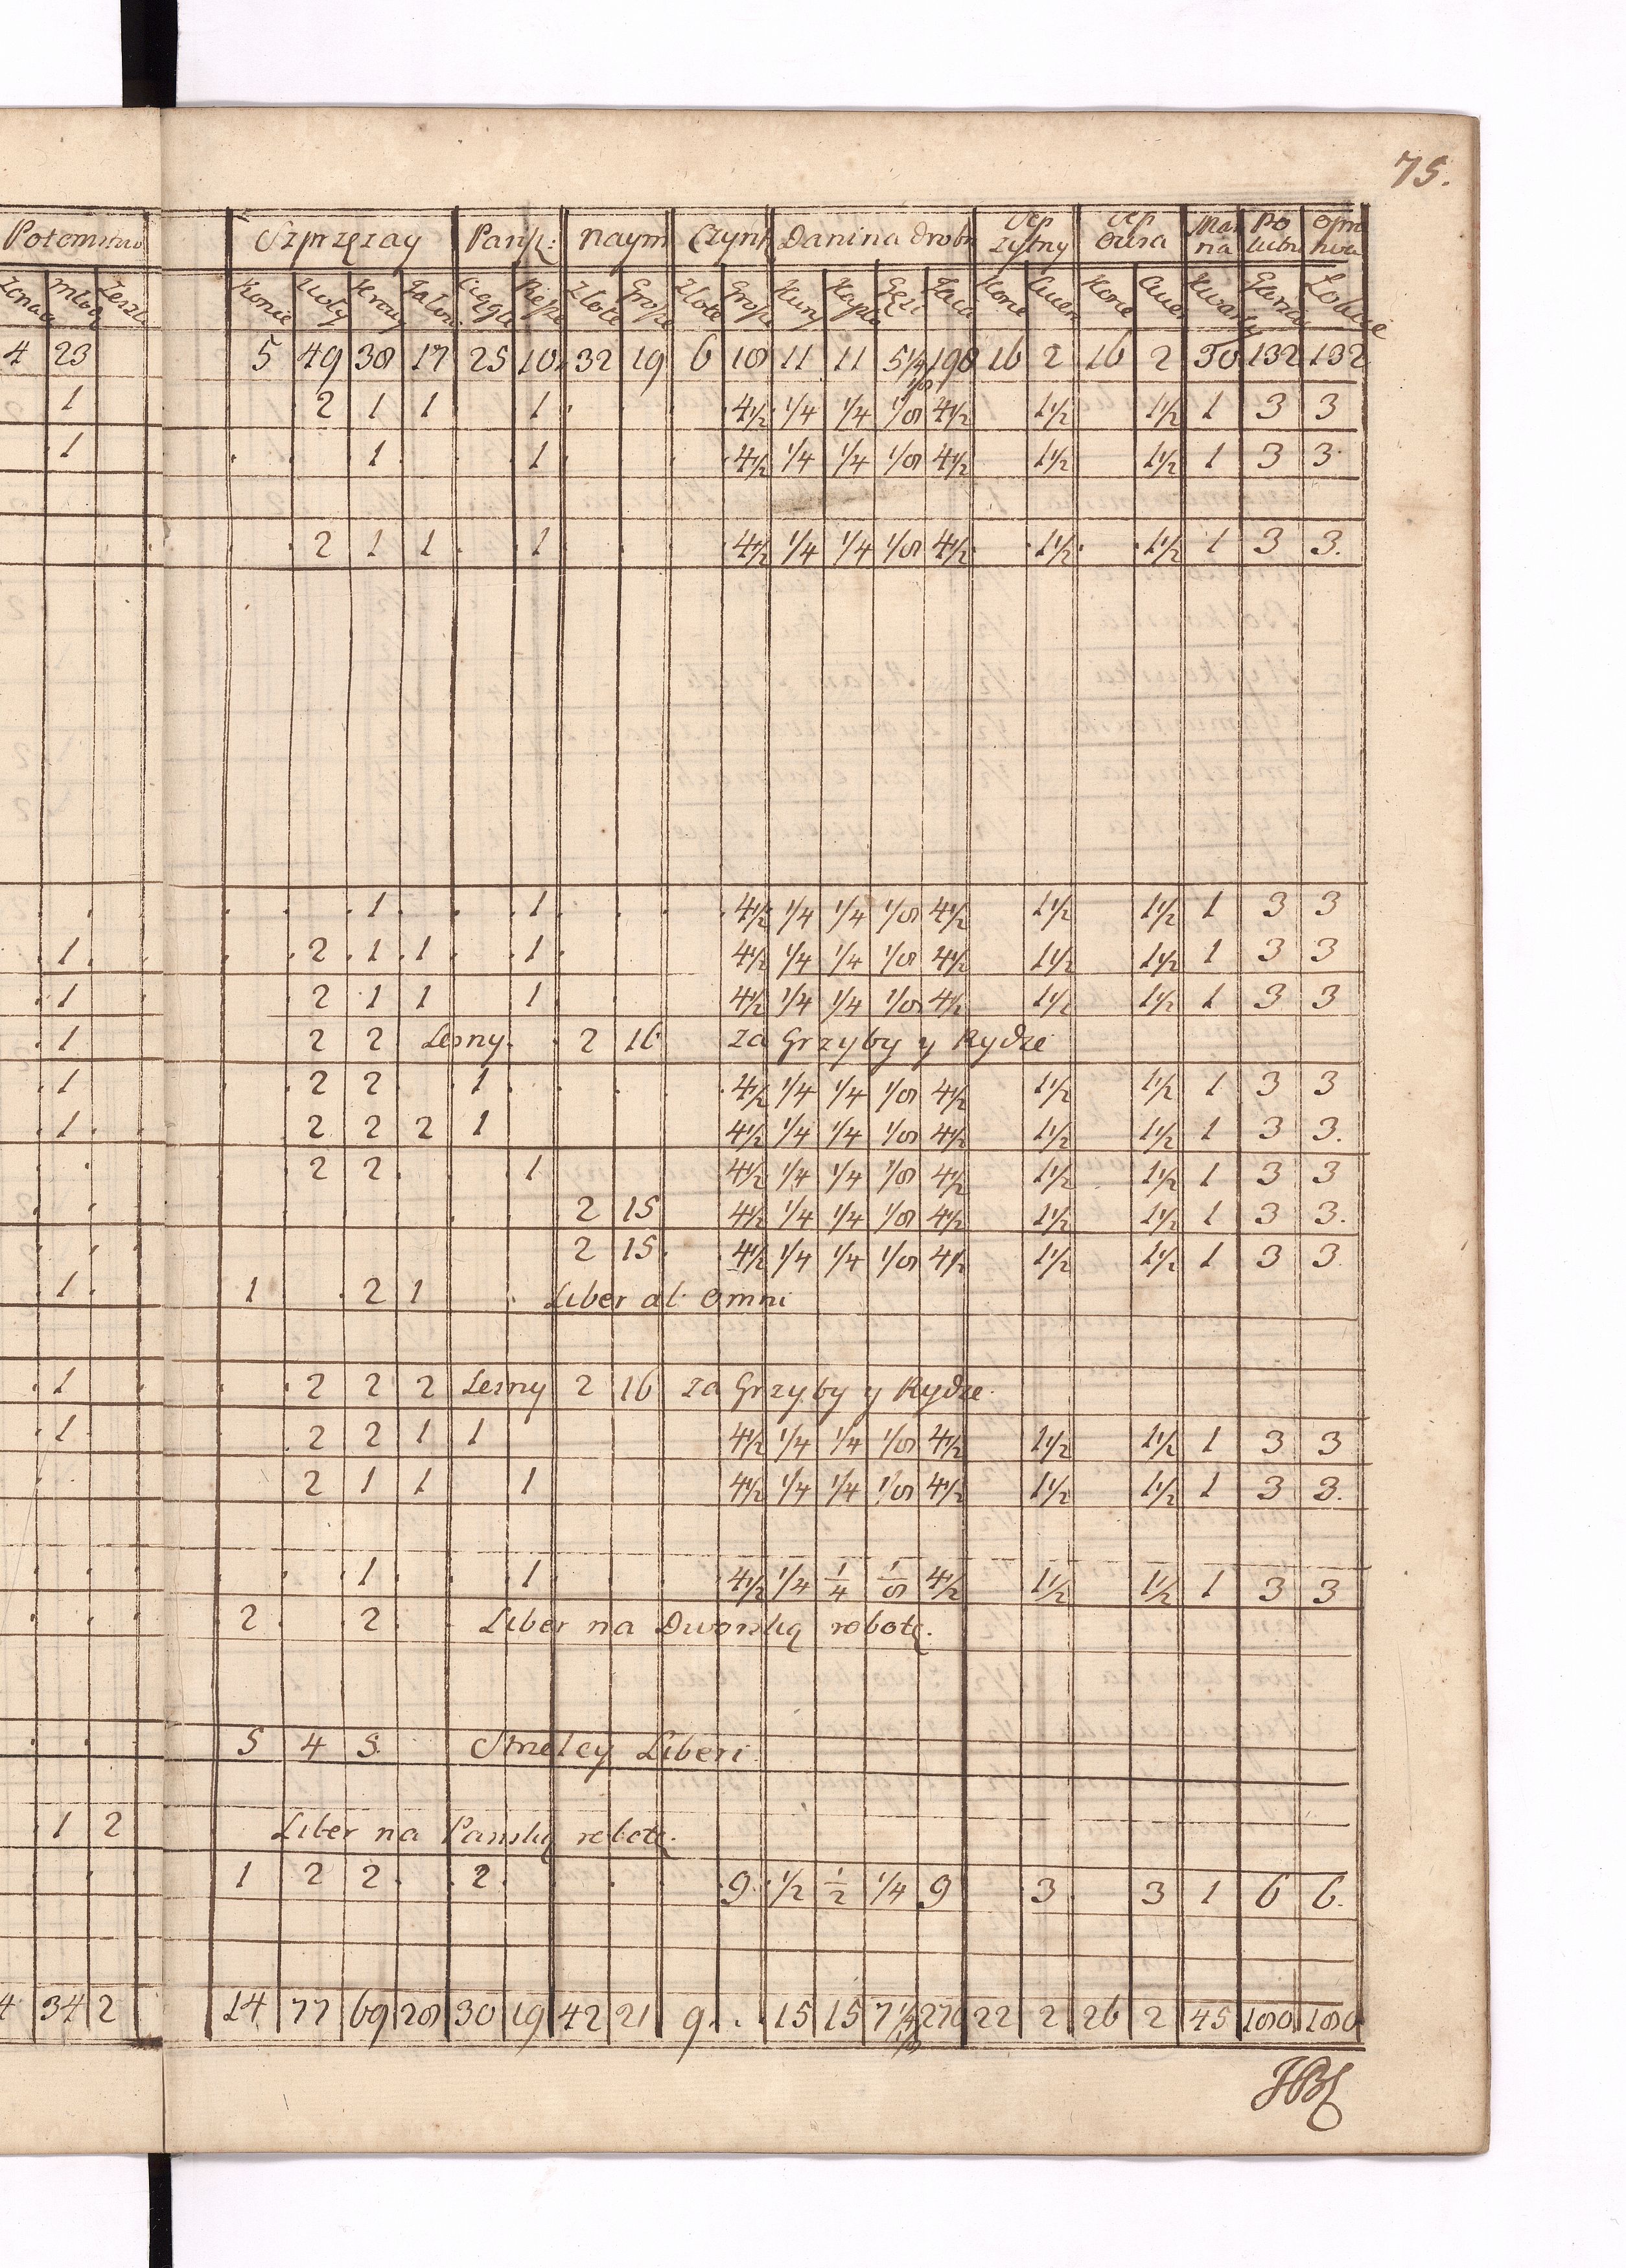 75.
Potomstwo Szprzęzay Pańsz: naym Czynsz Danina drobn Sep zytny Sep owsa Man na po lubn opra wa
Zonaci młodz Zeszli Konie Woły Krowy Jałow: Ciągłe Piesze Złote Grosze Złote Grosze Kury Kapło Gęsi Jaca Korce Cwier Korce Cwier Kwarty Garca Łokcie
4 23 5 49 38 17 25 10 32 19 6 18 11 11 5 1/4 1/8 198 16 2 16 2 30 132 132
1 2 1 1 1 4 1/2 1/4 1/4 1/8 4 1/2 1 1/2 1 1/2 1 3 3
1 1 1 4 1/2 1/4 1/4 1/8 4 1/2 1 1/2 1 1/2 1 3 3
2 1 1 1 4 1/2 1/4 1/4 1/8 4 1/2 1 1/2 1 1/2 1 3 3.
1 1 4 1/2 1/4 1/4 1/8 4 1/2 1 1/2 1 1/2 1 3 3
1 2 1 1 1 4 1/2 1/4 1/4 1/8 4 1/2 1 1/2 1 1/2 1 3 3
1 2 1 1 1 4 1/2 1/4 1/4 1/8 4 1/2 1 1/2 1 1/2 1 3 3
1 2 2 Lesny. 2 16 za Grzyby y Rydze
1 2 2 1 4 1/2 1/4 1/4 1/8 4 1/2 1 1/2 1 1/2 1 3 3
1 2 2 2 1 4 1/2 1/4 1/4 1/8 4 1/2 1 1/2 1 1/2 1 3 3.
2 2 1 4 1/2 1/4 1/4 1/8 4 1/2 1 1/2 1 1/2 1 3 3
2 15 4 1/2 1/4 1/4 1/8 4 1/2 1 1/2 1 1/2 1 3 3.
2 15 4 1/2 1/4 1/4 1/8 4 1/2 1 1/2 1 1/2 1 3 3
1 1 2 1 Liber ab omni
1 2 2 2 Lesny 2 16 za Grzyby y Rydze.
1 2 2 1 1 4 1/2 1/4 1/4 1/8 4 1/2 1 1/2 1 1/2 1 3 3
2 1 1 1 4 1/2 1/4 1/4 1/8 4 1/2 1 1/2 1 1/2 1 3 3.
1 1 4 1/2 1/4 1/4 1/8 4 1/2 1 1/2 1 1/2 1 3 3
2 2 Liber na Dworską robotę.
5 4 5 Strzelcy Liberi
1 2 Liber na Panską robotę.
1 2 2 2 9 1/2 1/2 1/4 9 3 3 1 6 6.
4 34 2 14 77 69 28 30 19 42 21 9 15 15 7 1/4 1/8 270 22 2 26 2 45 180 180